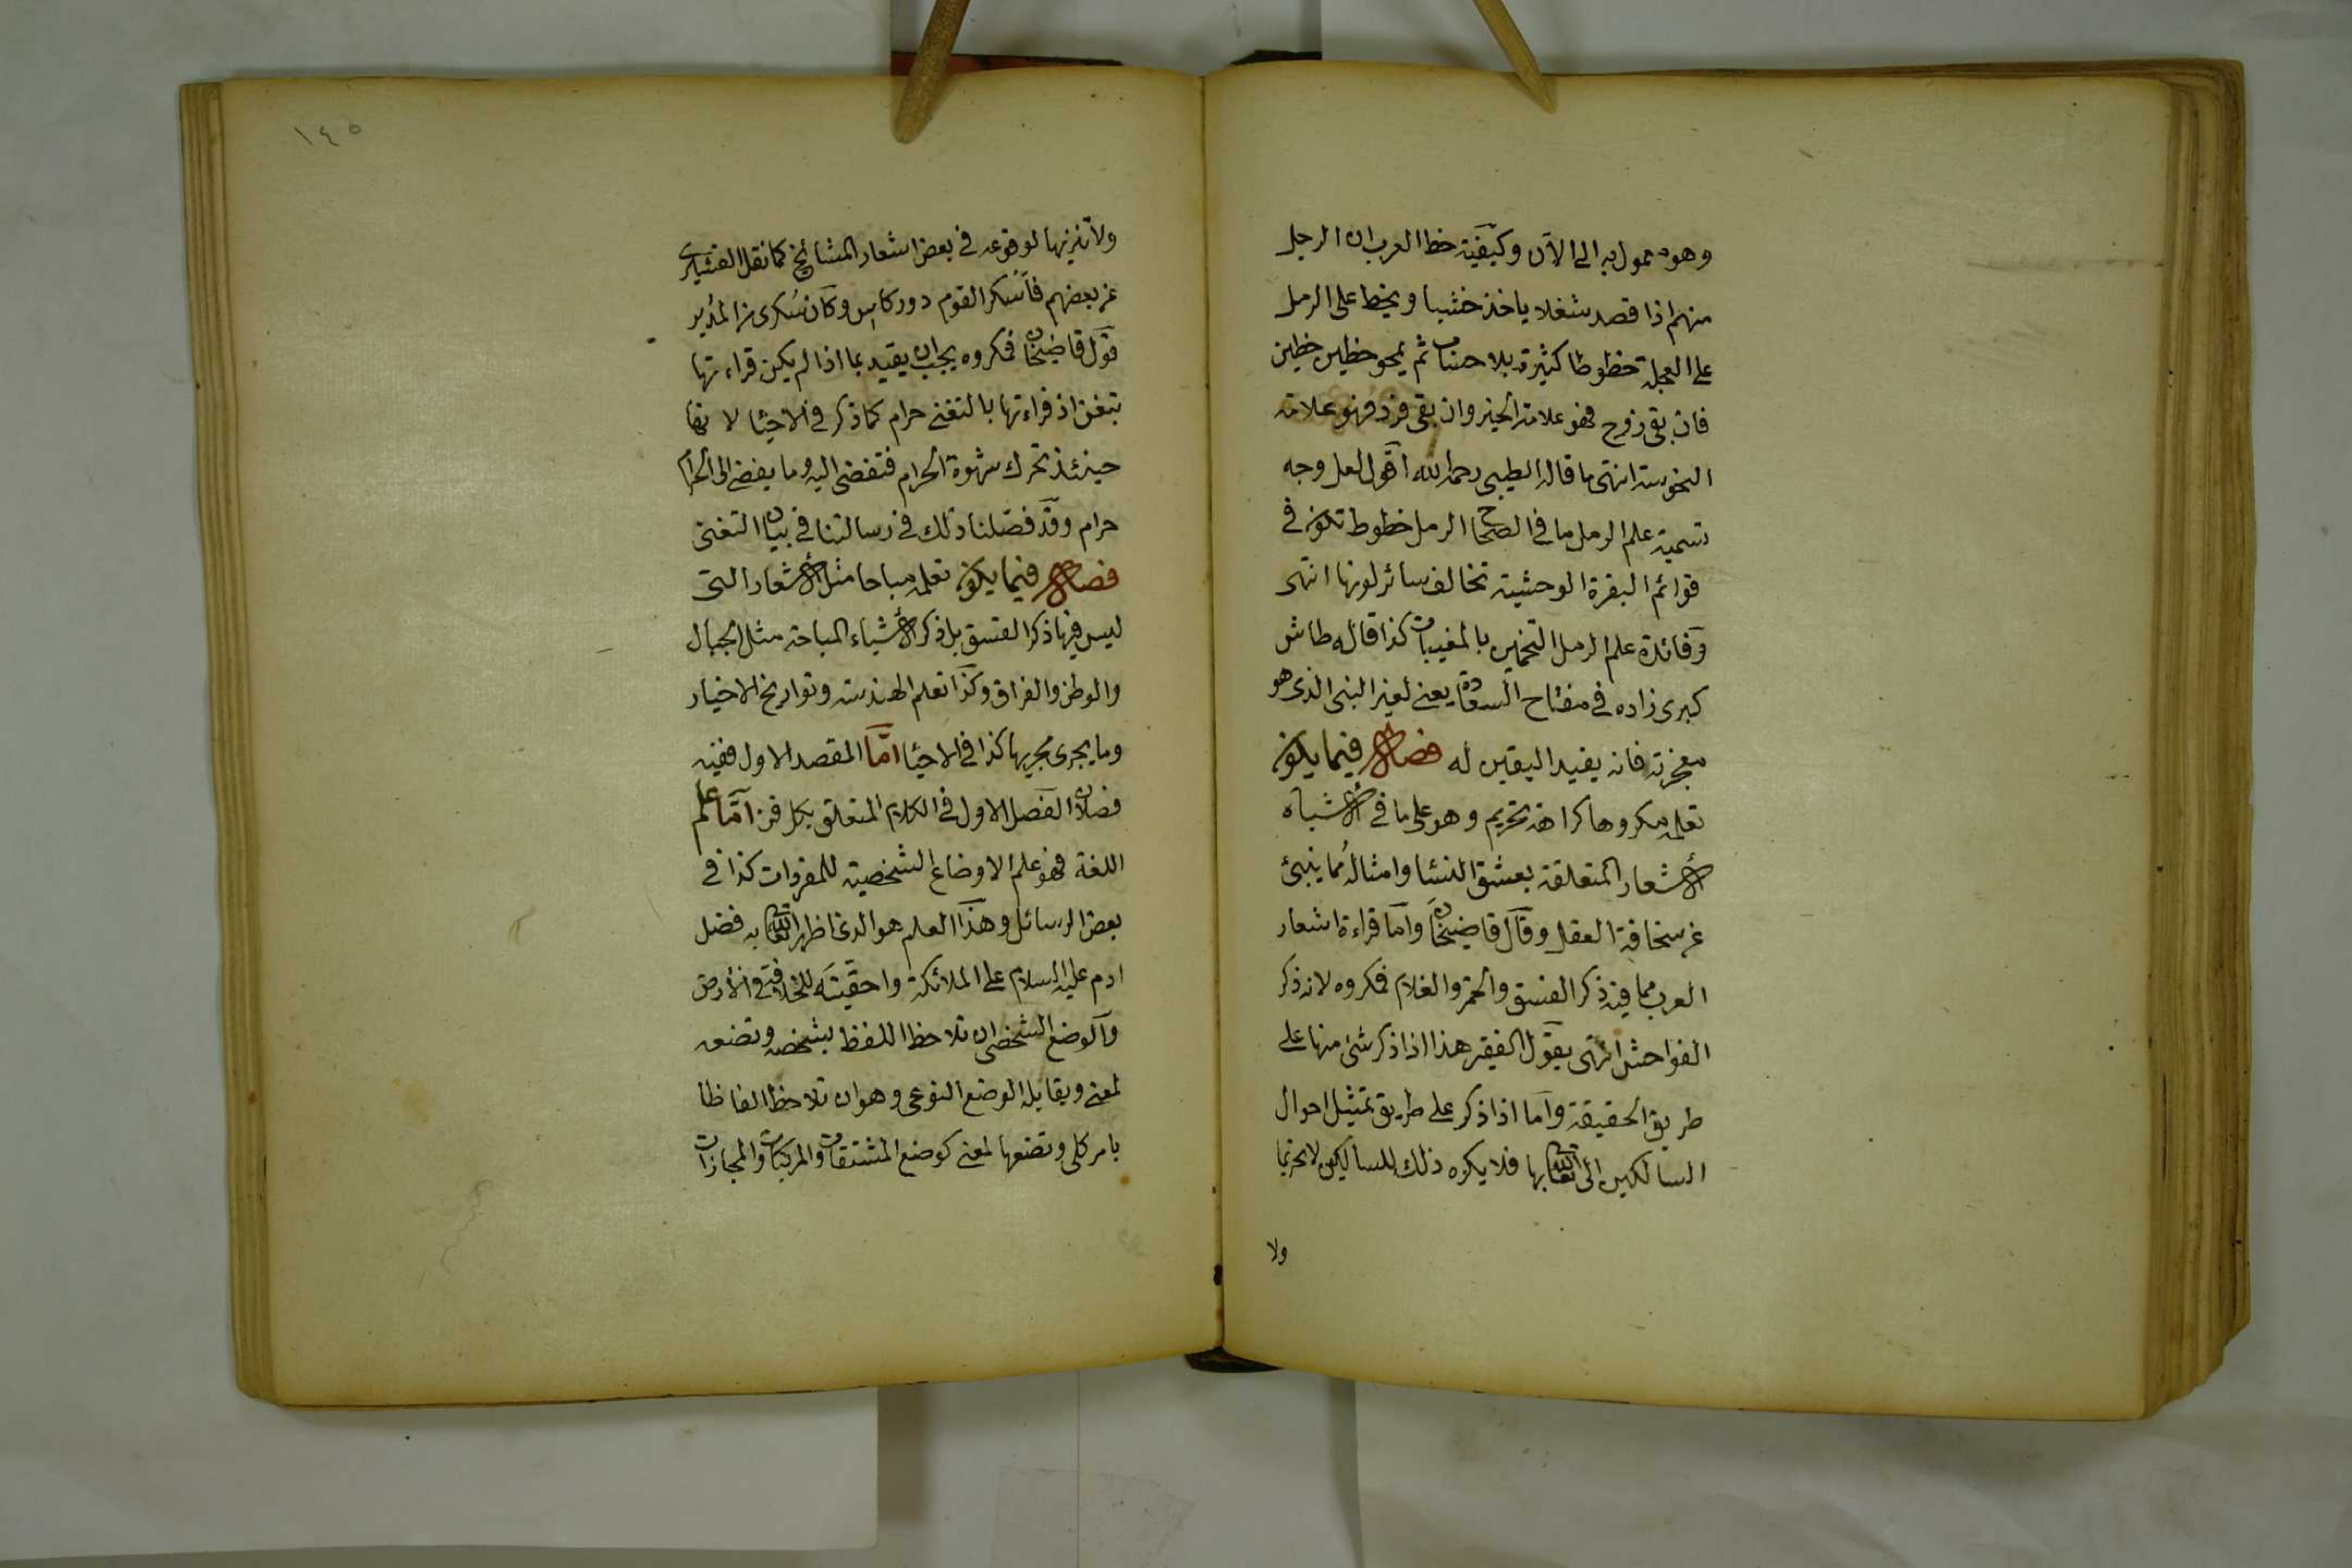 وهو معمول به الى الآن وكيفية خط العرب ان الرجل
منهم اذا قصد شغلا ياخذ خشبا ويخط على الرمل
على العجلة خطوطا كثيرة بلا حساب ثم يمحو خطين خطين
فان بقى زوج فهو علامة الخير وان بقى فرد فهو علامة
النحوسة انتهى ما قاله الطيبى رحمه الله اقول لعل وجه
تسمية علم الرمل ما فى الصحاح الرمل خطوط تكون فى
قوائم البقرة الوحشية تخالف سائر لونها انتهى
وفائدة علم الرمل التخمين بالمغيبات كذا قاله طاش
كبرى زاده فى مفتاح السعادة يعنى لغير النبى الذى هو
معجزته فانه يفيد اليقين له فصل فيما يكون
تعلمه مكروها كراهة تحريم وهو على ما فى الأشباه
الأشعار المتعلقة بعشق النساء وامثاله مما ينبئ
عن سخافة العقل وقال قاضيخان واما قراءة اشعار
العرب مما فيه ذكر الفسق والخمر والغلام فمكروه لانه ذكر
الفواحش انتهى يقول الفقير هذا اذا ذكر شئ منها على
طريق الحقيقة واما اذا ذكر على طريق تمثيل احوال
السالكين الى الله تعالى بها فلا يكره ذلك للسالكين لا تحريما
ولا
١٤٥
ولا تنزيها لوقوعه فى بعض اشعار المشائخ كما نقل القشيرى
عن بعضهم فأسكر القوم دور كاس وكان سكرى من المدير
قول قاضيخان فمكروه يجب ان يقيد بما اذا لم يكن قراءتها
بتغن اذ قراءتها بالتغنى حرام كما ذكر فى الاحياء لانها
حينئذ تحرك شهوة الحرام فتفضى اليه وما يفضى الى الحرام
حرام وقد فصلنا ذلك فى رسالتنا فى بيان التغنى
فصل فيما يكون تعلمه مباحا مثل الأشعار التى
ليس فيها ذكر الفسق بل ذكر الأشياء المباحة مثل الجبال
والوطن والفراق وكذا تعلم الهندسة وتواريخ الاخيار
وما يجرى مجريها كذا فى الاحياء امّا المقصد الاول ففيه
فصلان الفصل الاول فى الكلام المتعلق بكل فن امّا علم
اللغة فهو علم الاوضاع الشخصية للمفردات كذا فى
بعض الرسائل وهذا العلم هو الذى اظهر الله تعالى به فضل
ادم عليه السلام على الملائكة واحقيته للخلافة فى الأرض
والوضع الشخصى ان تلاحظ اللفظ بشخصه وتضعه
لمعنى ويقابله الوضع النوعى وهو ان تلاحظ الفاظا
بامر كلى وتضعها لمعنى كوضع المشتقات والمركبات والمجازات